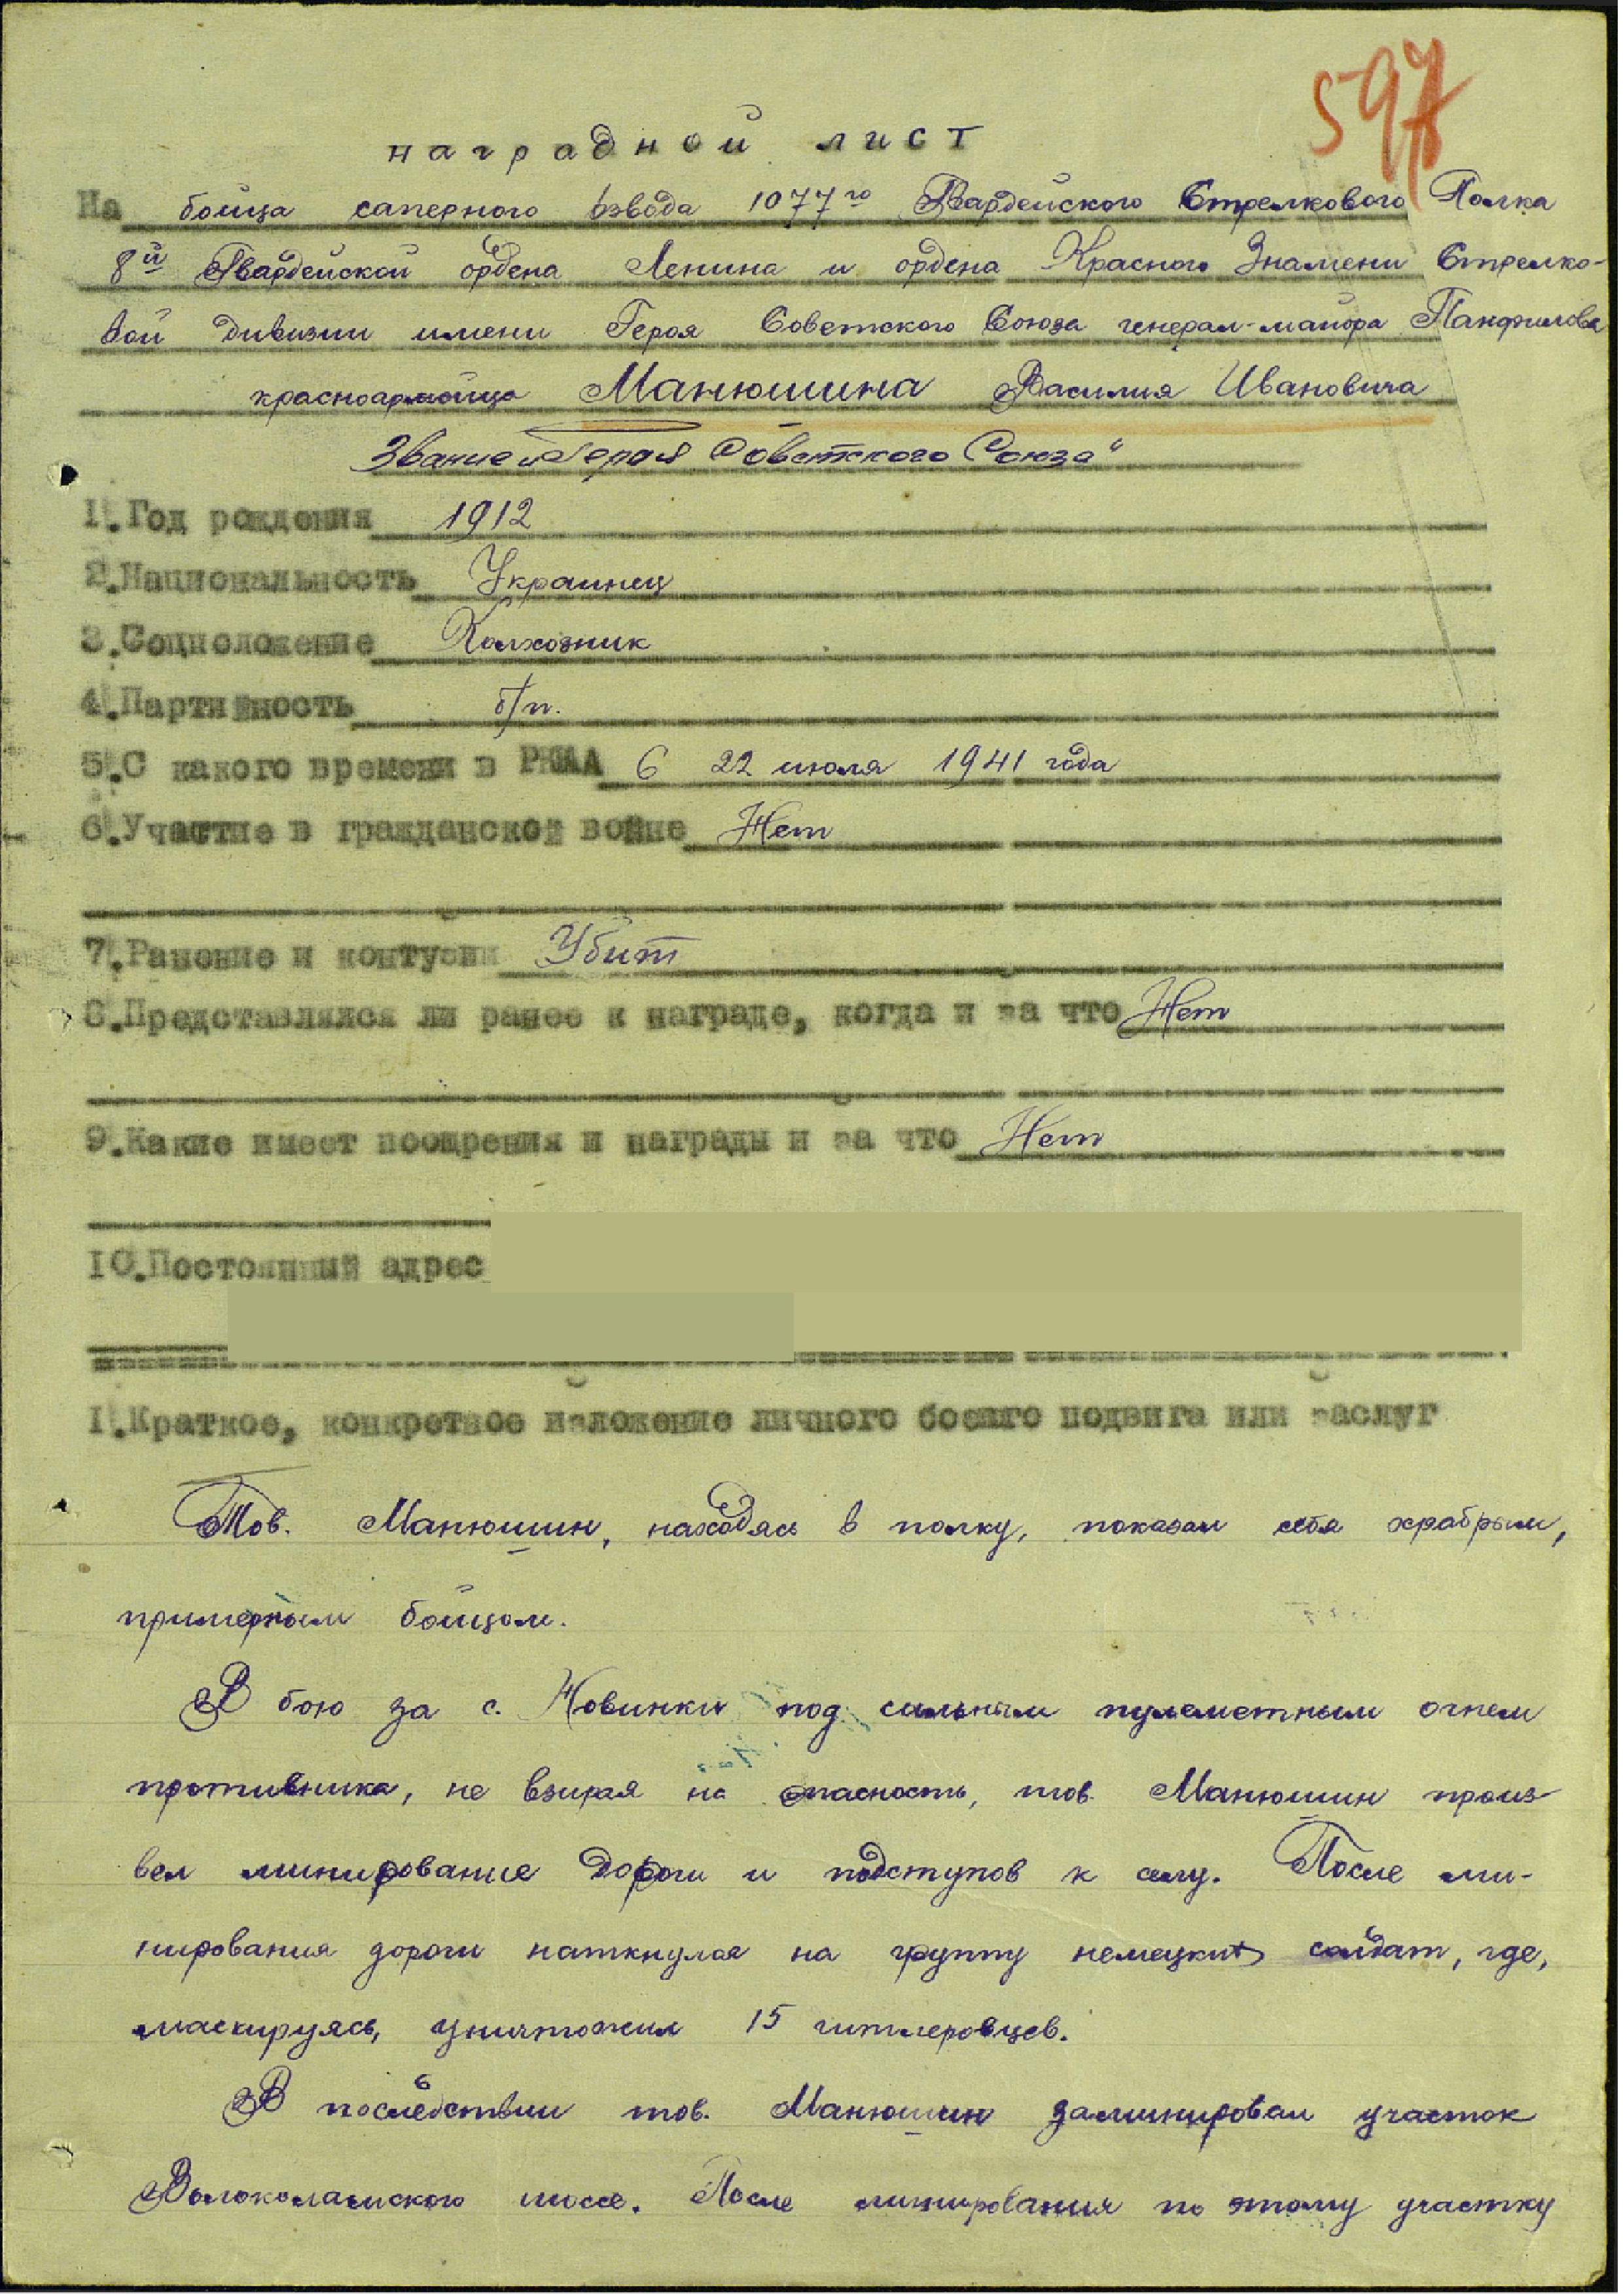 597
наградной лист
На бойца саперного взвода 1077го Гвардейского Стрелкового Полка
8й Гвардейской ордена Ленина и ордена Красного Знамени Стрелко-
вой дивизии имени Героя Советского Союза генерал-майора Панфилова
красноармейца Манюшина Василия Ивановича
Звание „Героя Советского Союза"
1.Год рождения 1912
2.Национальность Украинец
3.Соцположение Колхозник
4.Партийность б/п.
5.С какого времени в РККА С 22 июля 1941 года
6.Участие в гражданской войне Нет
7.Ранение и контузии Убит
8.Представлялся ли ранее к награде, когда и за что Нет
9.Какие имеет поощрения и награды и за что Нет
10.Постоянный адрес
I.Краткое, конкретное изложение личного боевого подвига или заслуг
Тов. Манюшин, находясь в полку, показал себя храбрым,
примерным бойцом.
В бою за с. Новинки под сильным пулеметным огнем
противника, не взирая на опасность, тов. Манюшин произ-
вел минирование дороги и подступов к селу. После ми-
нирования дороги наткнулся на группу немецких солдат, где,
маскируясь, уничтожил 15 гитлеровцев.
В последствии тов. Манюшин заминировал участок
Волоколамского шоссе. После минирования по этому участку